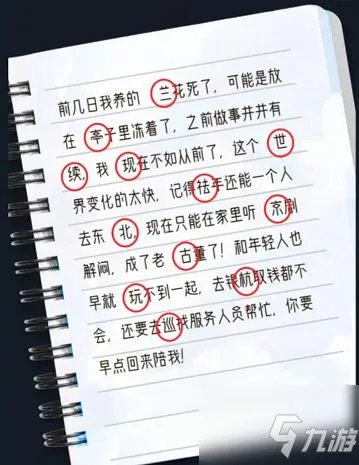 前几日我养的 兰花死了，可能是放
在 亭子里冻着了，之前做事井井有
续，我 现在不如从前了，这个 世
界变化的太快，记得祛年还能一个人
去东 北，现在只能在家里听 京剧
解闷，成了老 古董了！和年轻人也
早就 玩不到一起，去银杭取钱都不
会，还要去巡找服务人员帮忙，你要
早点回来陪我！
九游